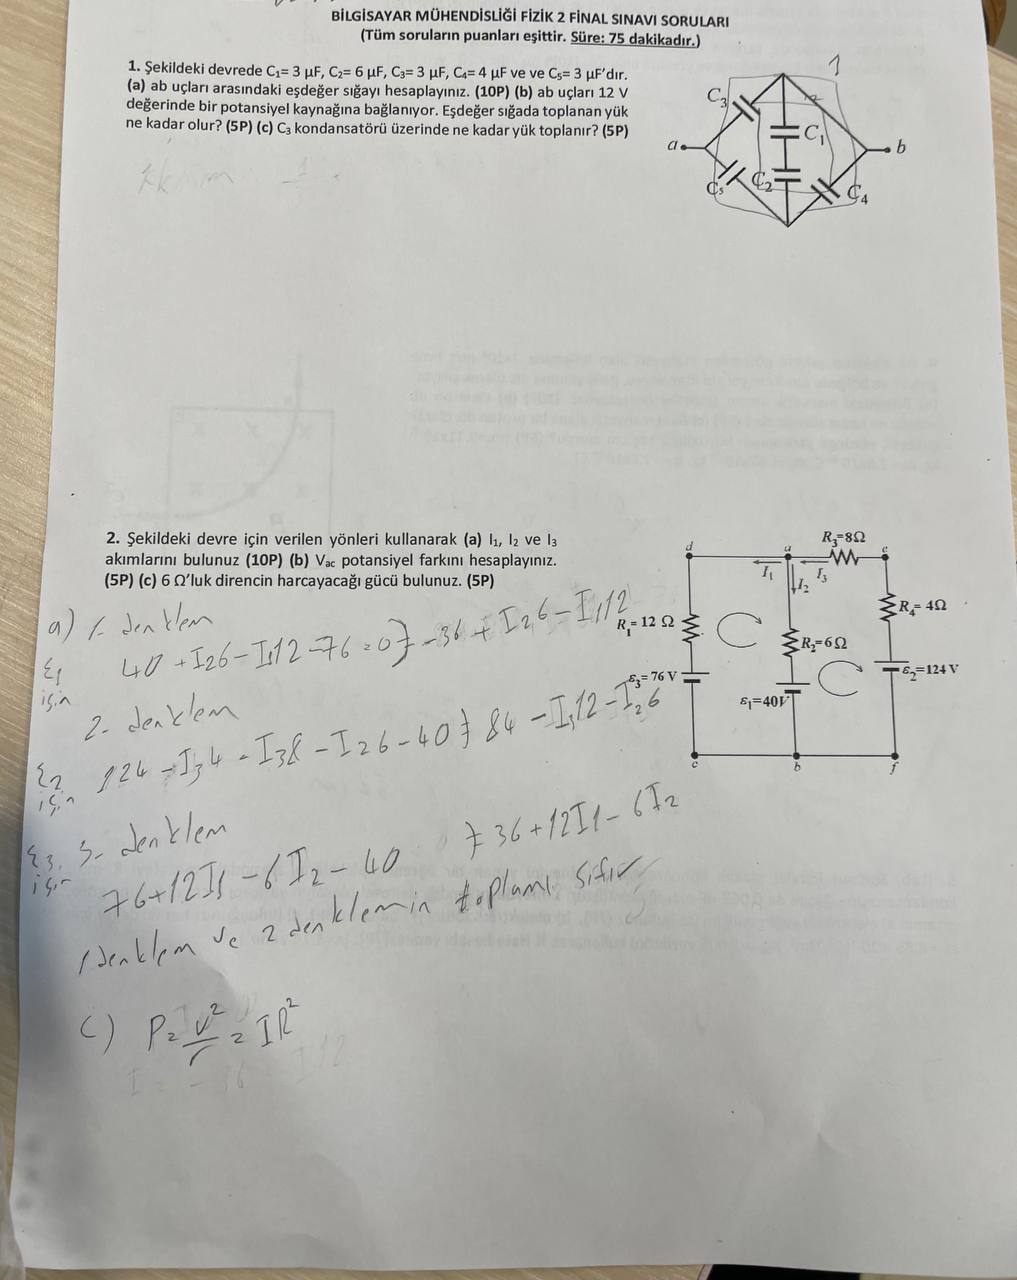 BİLGİSAYAR MÜHENDİSLİĞİ FİZİK 2 FİNAL SINAVI SORULARI
(Tüm soruların puanları eşittir. Süre: 75 dakikadır.)
1. Şekildeki devrede C₁= 3 μF, C₂= 6 μF, C₃= 3 μF, C₄= 4 μF ve ve C₅= 3 μF'dır.
(a) ab uçları arasındaki eşdeğer sığayı hesaplayınız. (10P) (b) ab uçları 12 V
değerinde bir potansiyel kaynağına bağlanıyor. Eşdeğer sığada toplanan yük
ne kadar olur? (5P) (c) C₃ kondansatörü üzerinde ne kadar yük toplanır? (5P)
1
C₃
C₁
a
b
C₅
C₂
C₄
2. Şekildeki devre için verilen yönleri kullanarak (a) I₁, I₂ ve I₃
akımlarını bulunuz (10P) (b) Vac potansiyel farkını hesaplayınız.
(5P) (c) 6 Ω'luk direncin harcayacağı gücü bulunuz. (5P)
R₃=8Ω
d
a
e
I₁
I₂
I₃
R₁= 12 Ω
R₂=6Ω
R₄= 4Ω
ε₃= 76 V
ε₁=40V
ε₂=124 V
c
b
f
a) 1- denklem
ε₁ için
40 + I₂6 - I₁12 - 76 = 0 } -36 + I₂6 - I₁12
2- denklem
ε₂ için
124 - I₃4 - I₃8 - I₂6 - 40 } 84 - I₃12 - I₂6
ε₃ için
3- denklem
76+12I₁ - 6I₂ - 40 } 36+12I1 - 6I₂
1 denklem ve 2 denklemin toplamı sıfır
c) P = V²/r = IR²